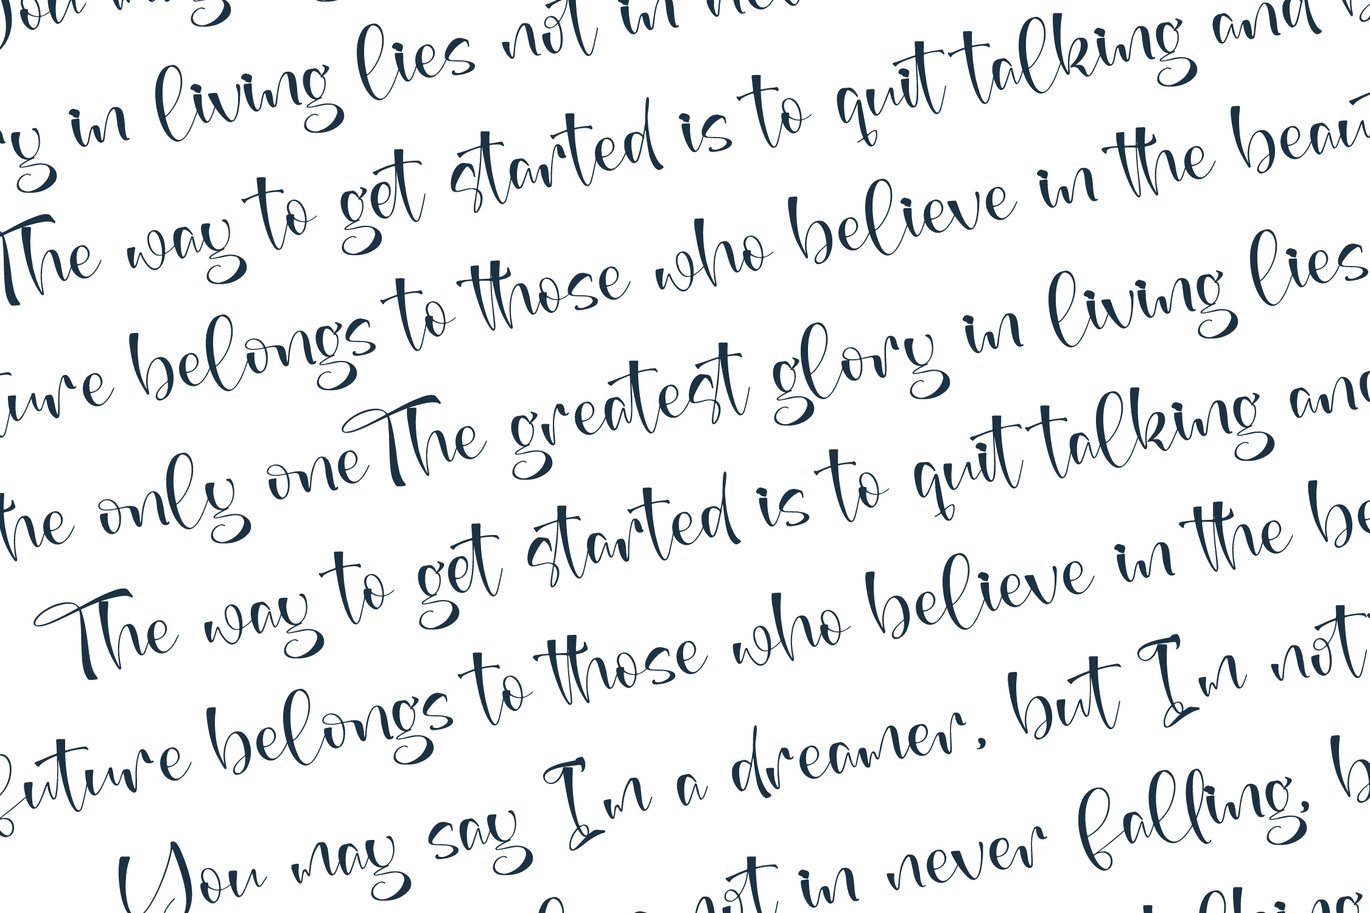 You may
ry in living lies not in ne
The way to get started is to quit talking and b
ture belongs to those who believe in the beau
the only one The greatest glory in living lies
The way to get started is to quit talking and
future belongs to those who believe in the be
You may say Im a dreamer, but Im not
not in never falling, b
talking